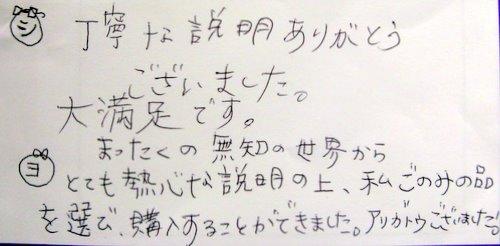 シ 丁寧な説明ありがとう
ございました。
大満足です。
ヨ まったくの無知の世界から
とても熱心な説明の上、私ごのみの品
を選び、購入することができました。アリガトウございました!